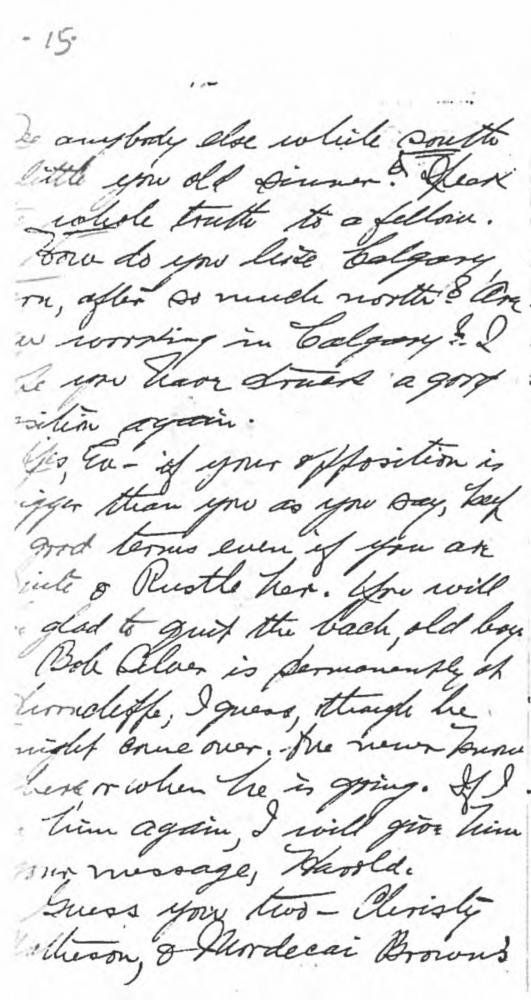 - 15 -
anybody else while south
little you old sinner? Speak
whole truth to a fellow.
How do you like Calgary,
rn, after so much north? Are
u working in Calgary? I
e you have struck a good
sition again.
Yes, Ev - if your opposition is
igger than you as you say, keep
good terms even if you are
inte & Rustle her. You will
glad to quit the bach, old boy.
Bob Silver is permanently at
horncliffe, I guess, though he
might come over. We never know
here or when he is going. If I
him again, I will give him
our message, Harold.
Guess you two - Christy
athewson, & Mordecai Brown's